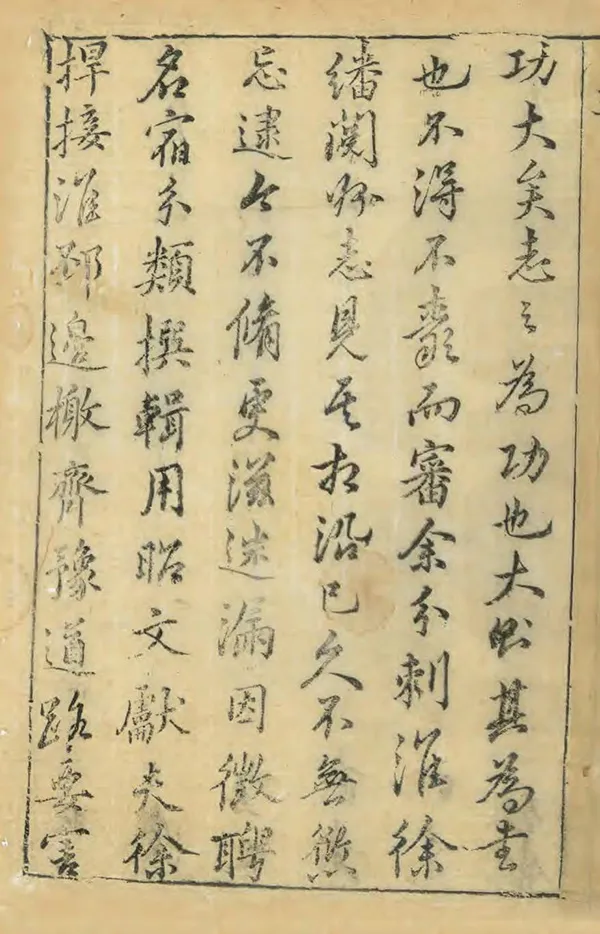 功大矣志之為功也大則其為書
也不得不嚴而審余分刺淮徐
繙閱州志見其相沿已久不無愆
忘逮今不脩更滋迷漏因徵聘
名宿分類撰輯用昭文獻夫徐
捍接淮邳邊檄齊豫道路要害